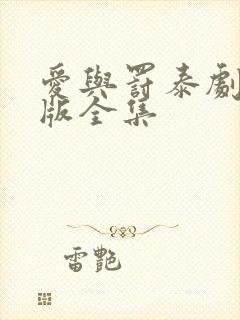 愛與罰泰劇
版全集
雷艷